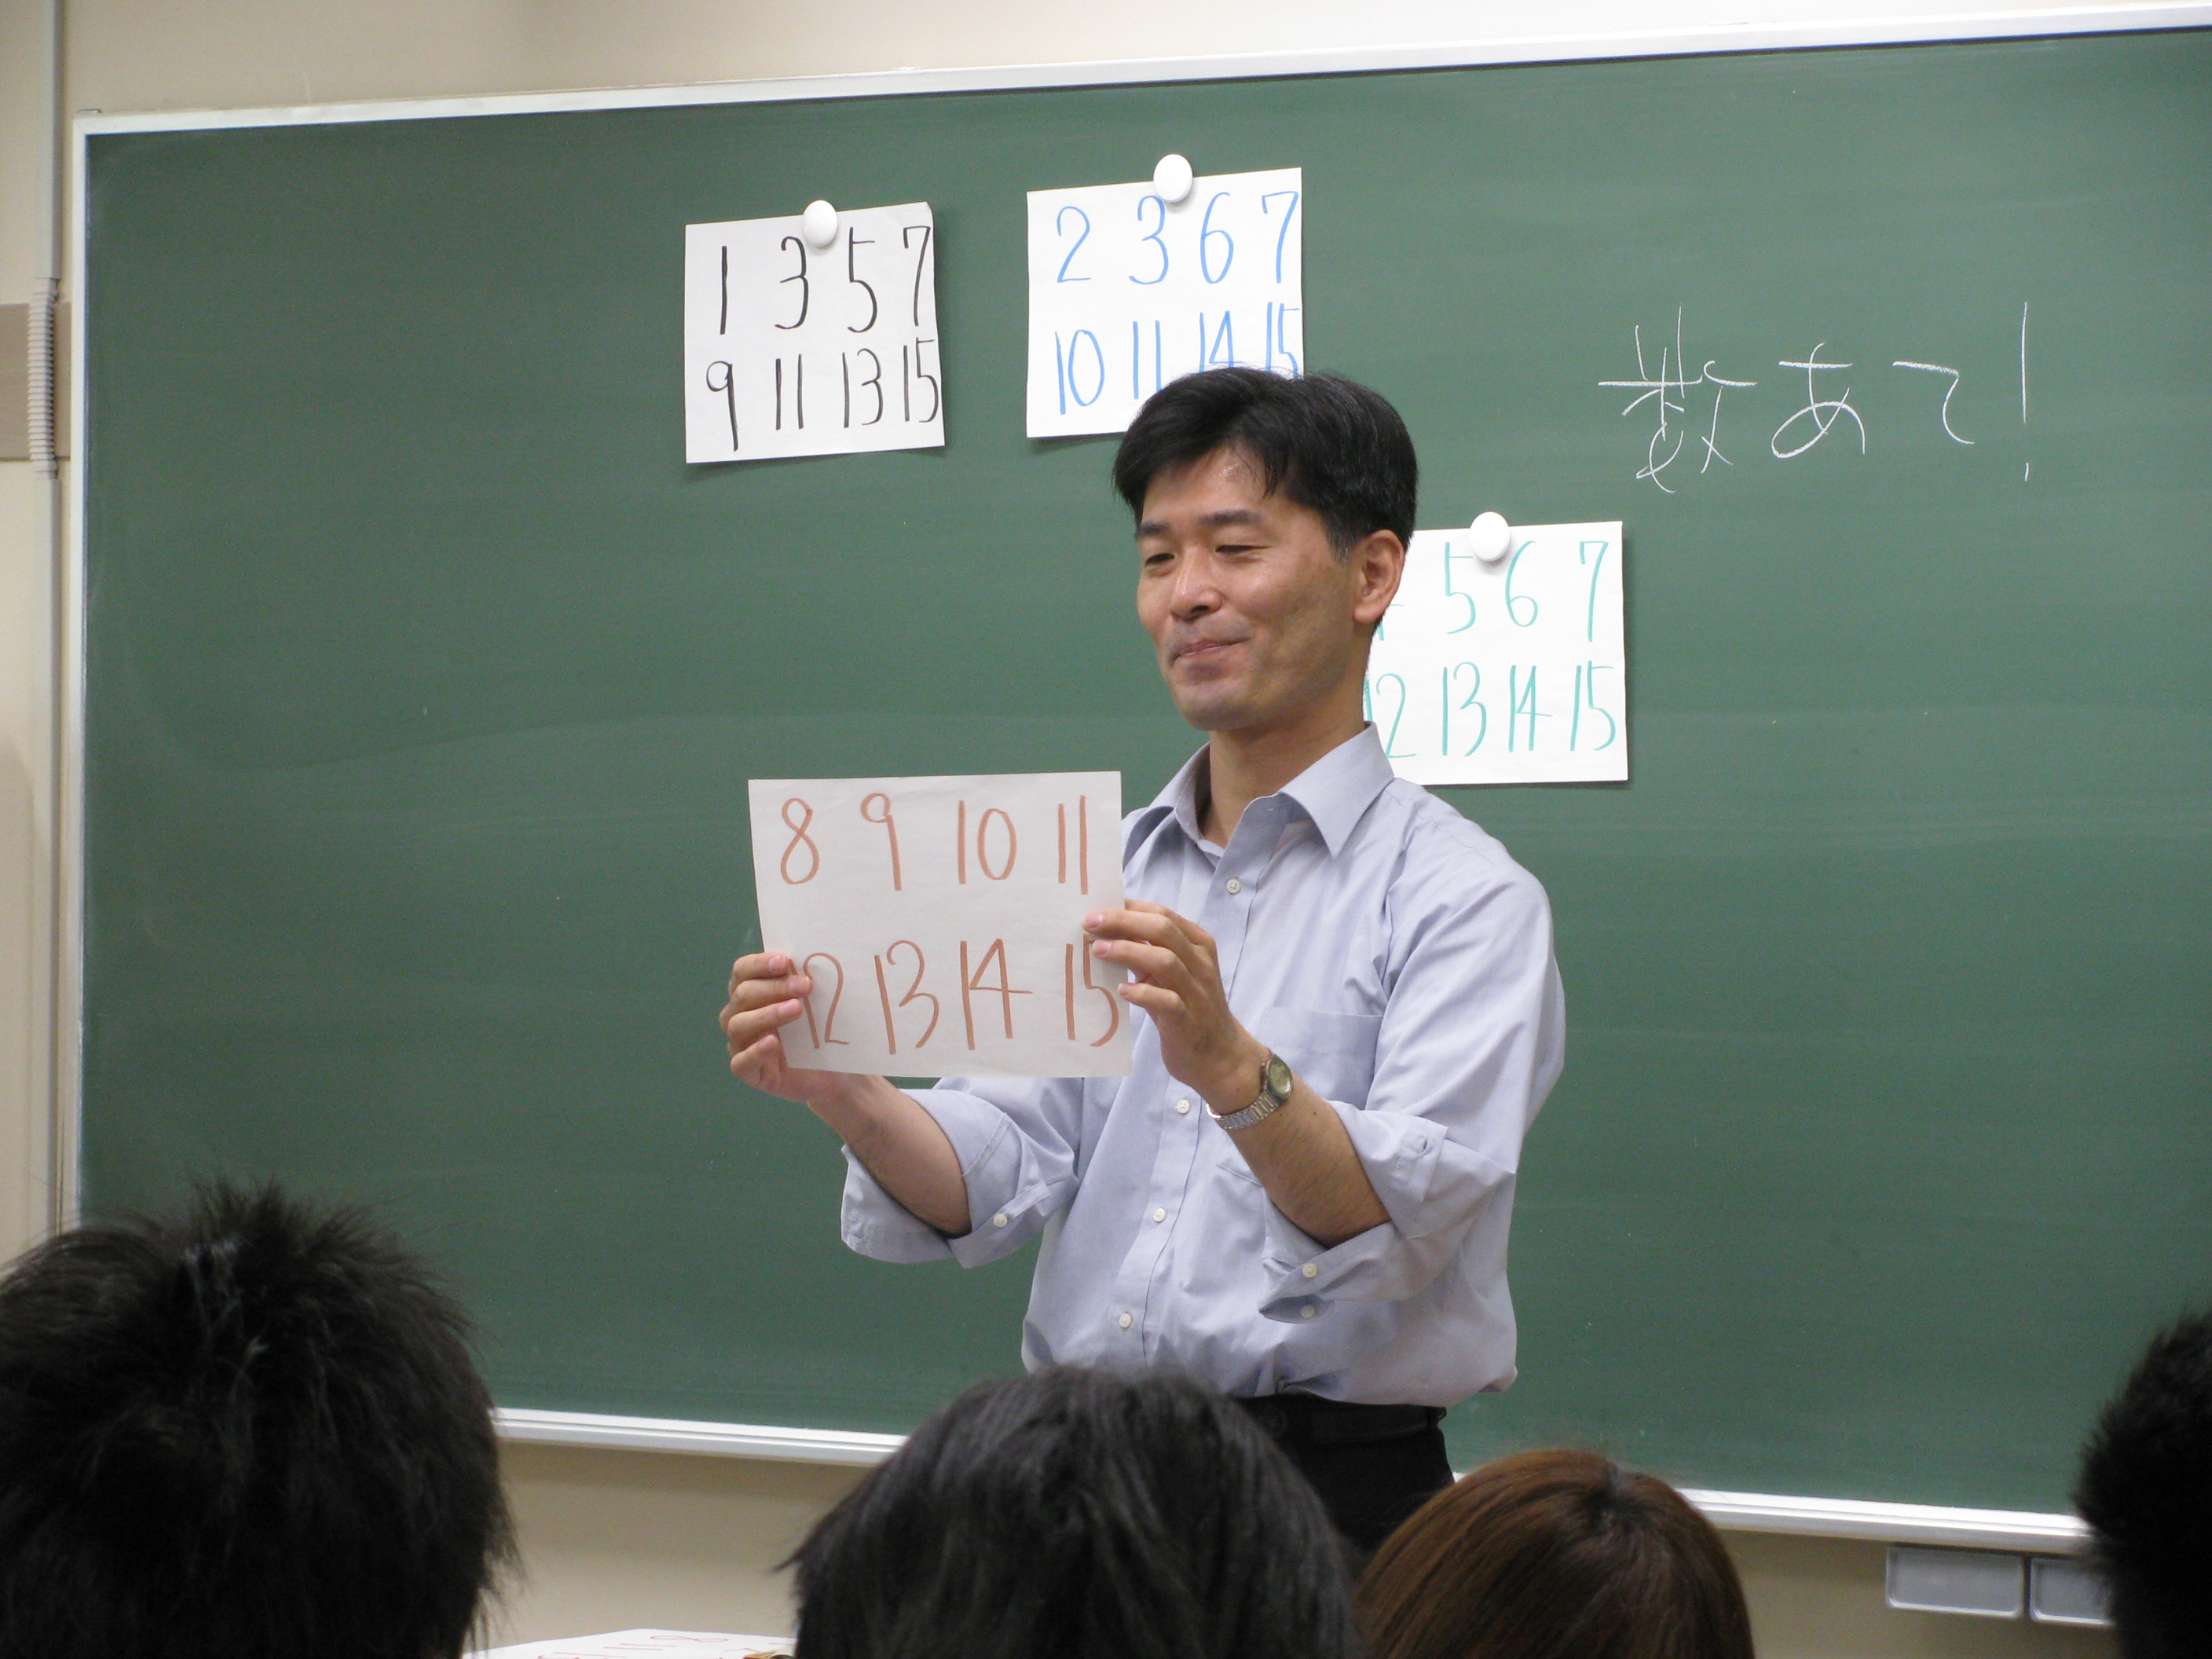 1 3 5 7
9 11 13 15
2 3 6 7
10 11 14 15
数あて!
5 6 7
12 13 14 15
8 9 10 11
12 13 14 15